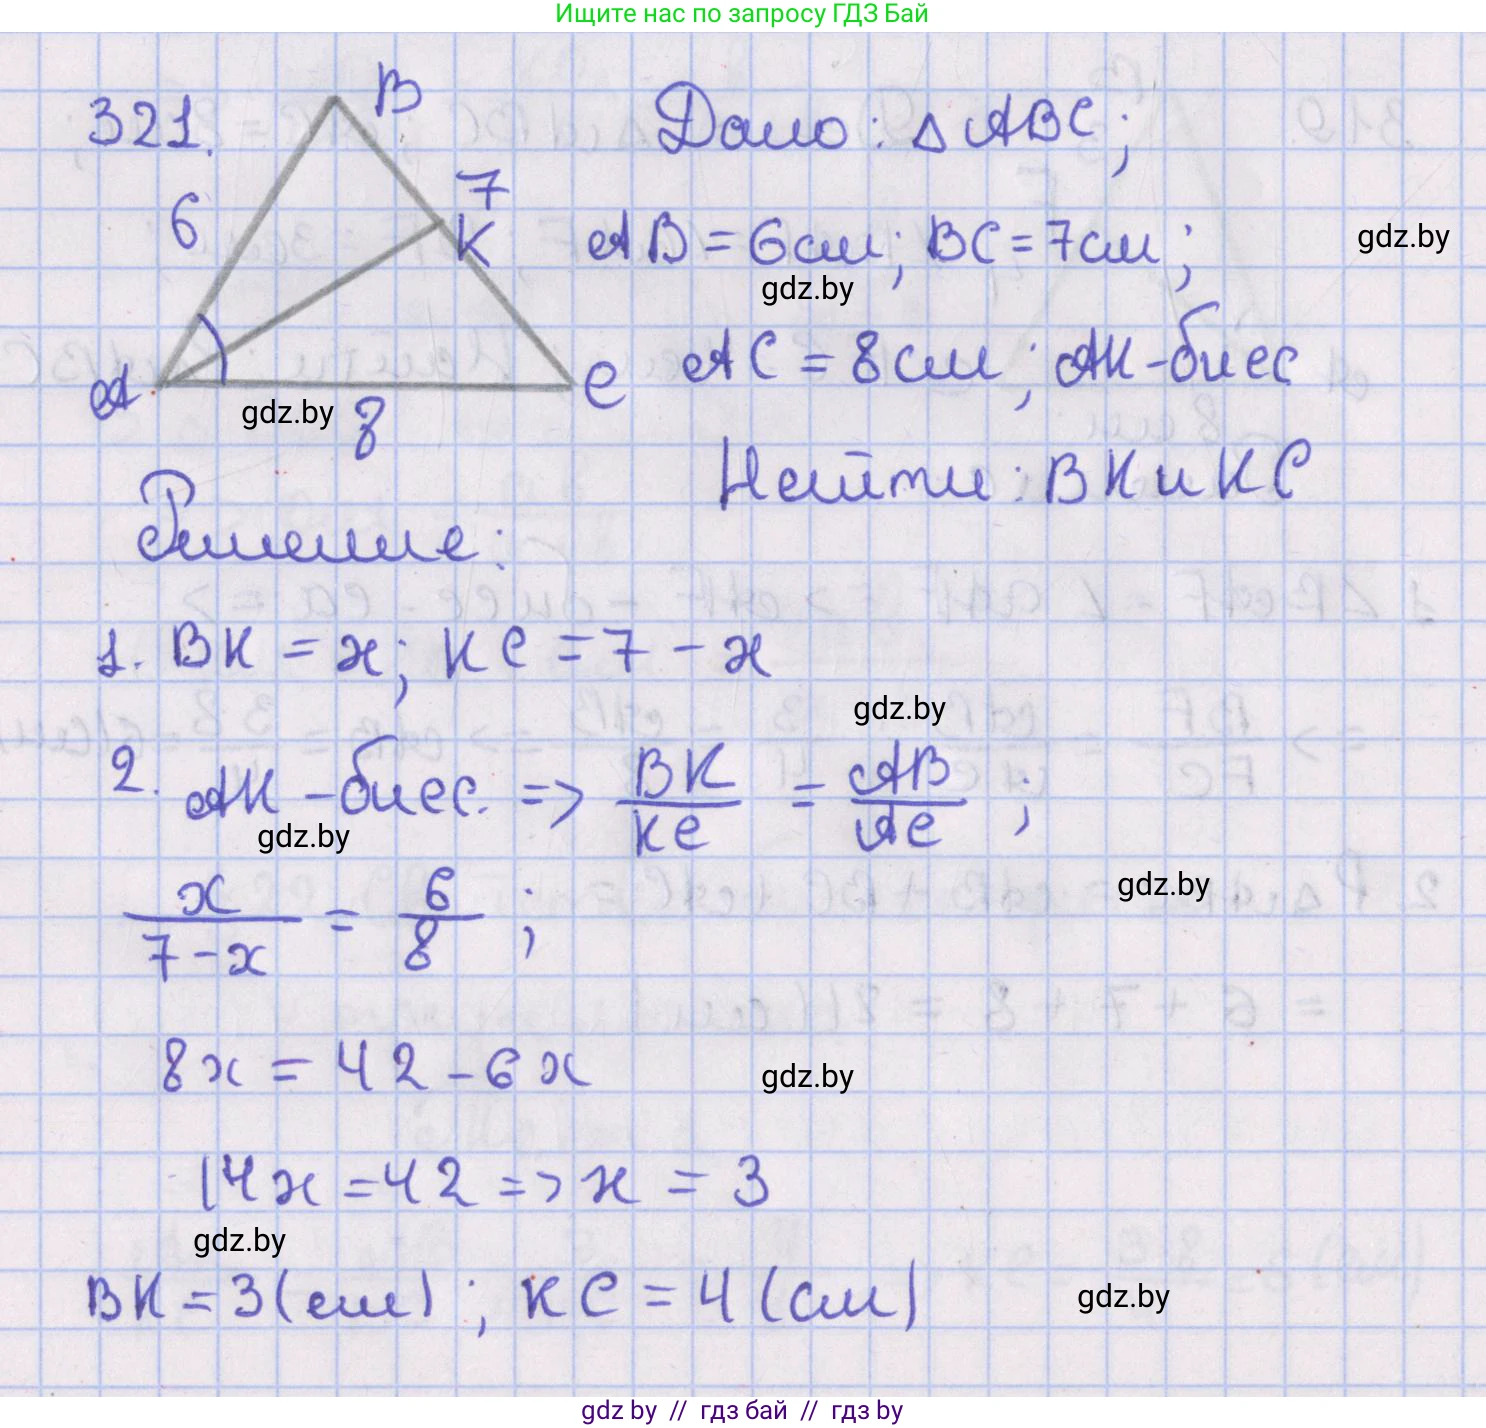 Ищите нас по запросу ГДЗ Бай
321.
B
6
7
K
A
C
8
gdz.by
Дано: △ABC;
AB = 6см; BC = 7см;
gdz.by
gdz.by
AC = 8см; AK - бисс
Найти: BK и KC
Решение:
1. BK = x; KC = 7 - x
gdz.by
2. AK - бисс. => BK/KC = AB/AC;
gdz.by
gdz.by
x/(7-x) = 6/8;
8x = 42 - 6x
gdz.by
14x = 42 => x = 3
gdz.by
BK = 3(см); KC = 4(см)
gdz.by
gdz by // гдз бай // гдз by